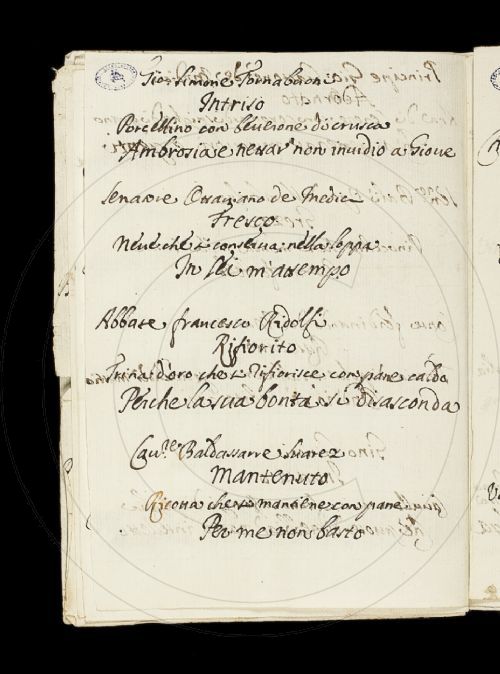 Gio: Simone Tornabuoni
Intriso
Porcellino con beverone di crusca
Ambrosia e nettar non invidio a Giove
Senatore Ottaviano de Medici
Fresco
Neve che si conserva nella loppa
In lei m'attempo
Abbate Francesco Ridolfi
Rifiorito
Trina d'oro che si rifiorisce con pane caldo
Perche la sua bontà si disasconda
Cav.re Baldassarre Suarez
Mantenuto
Ricotta che si mantiene con pane
Per me non basto